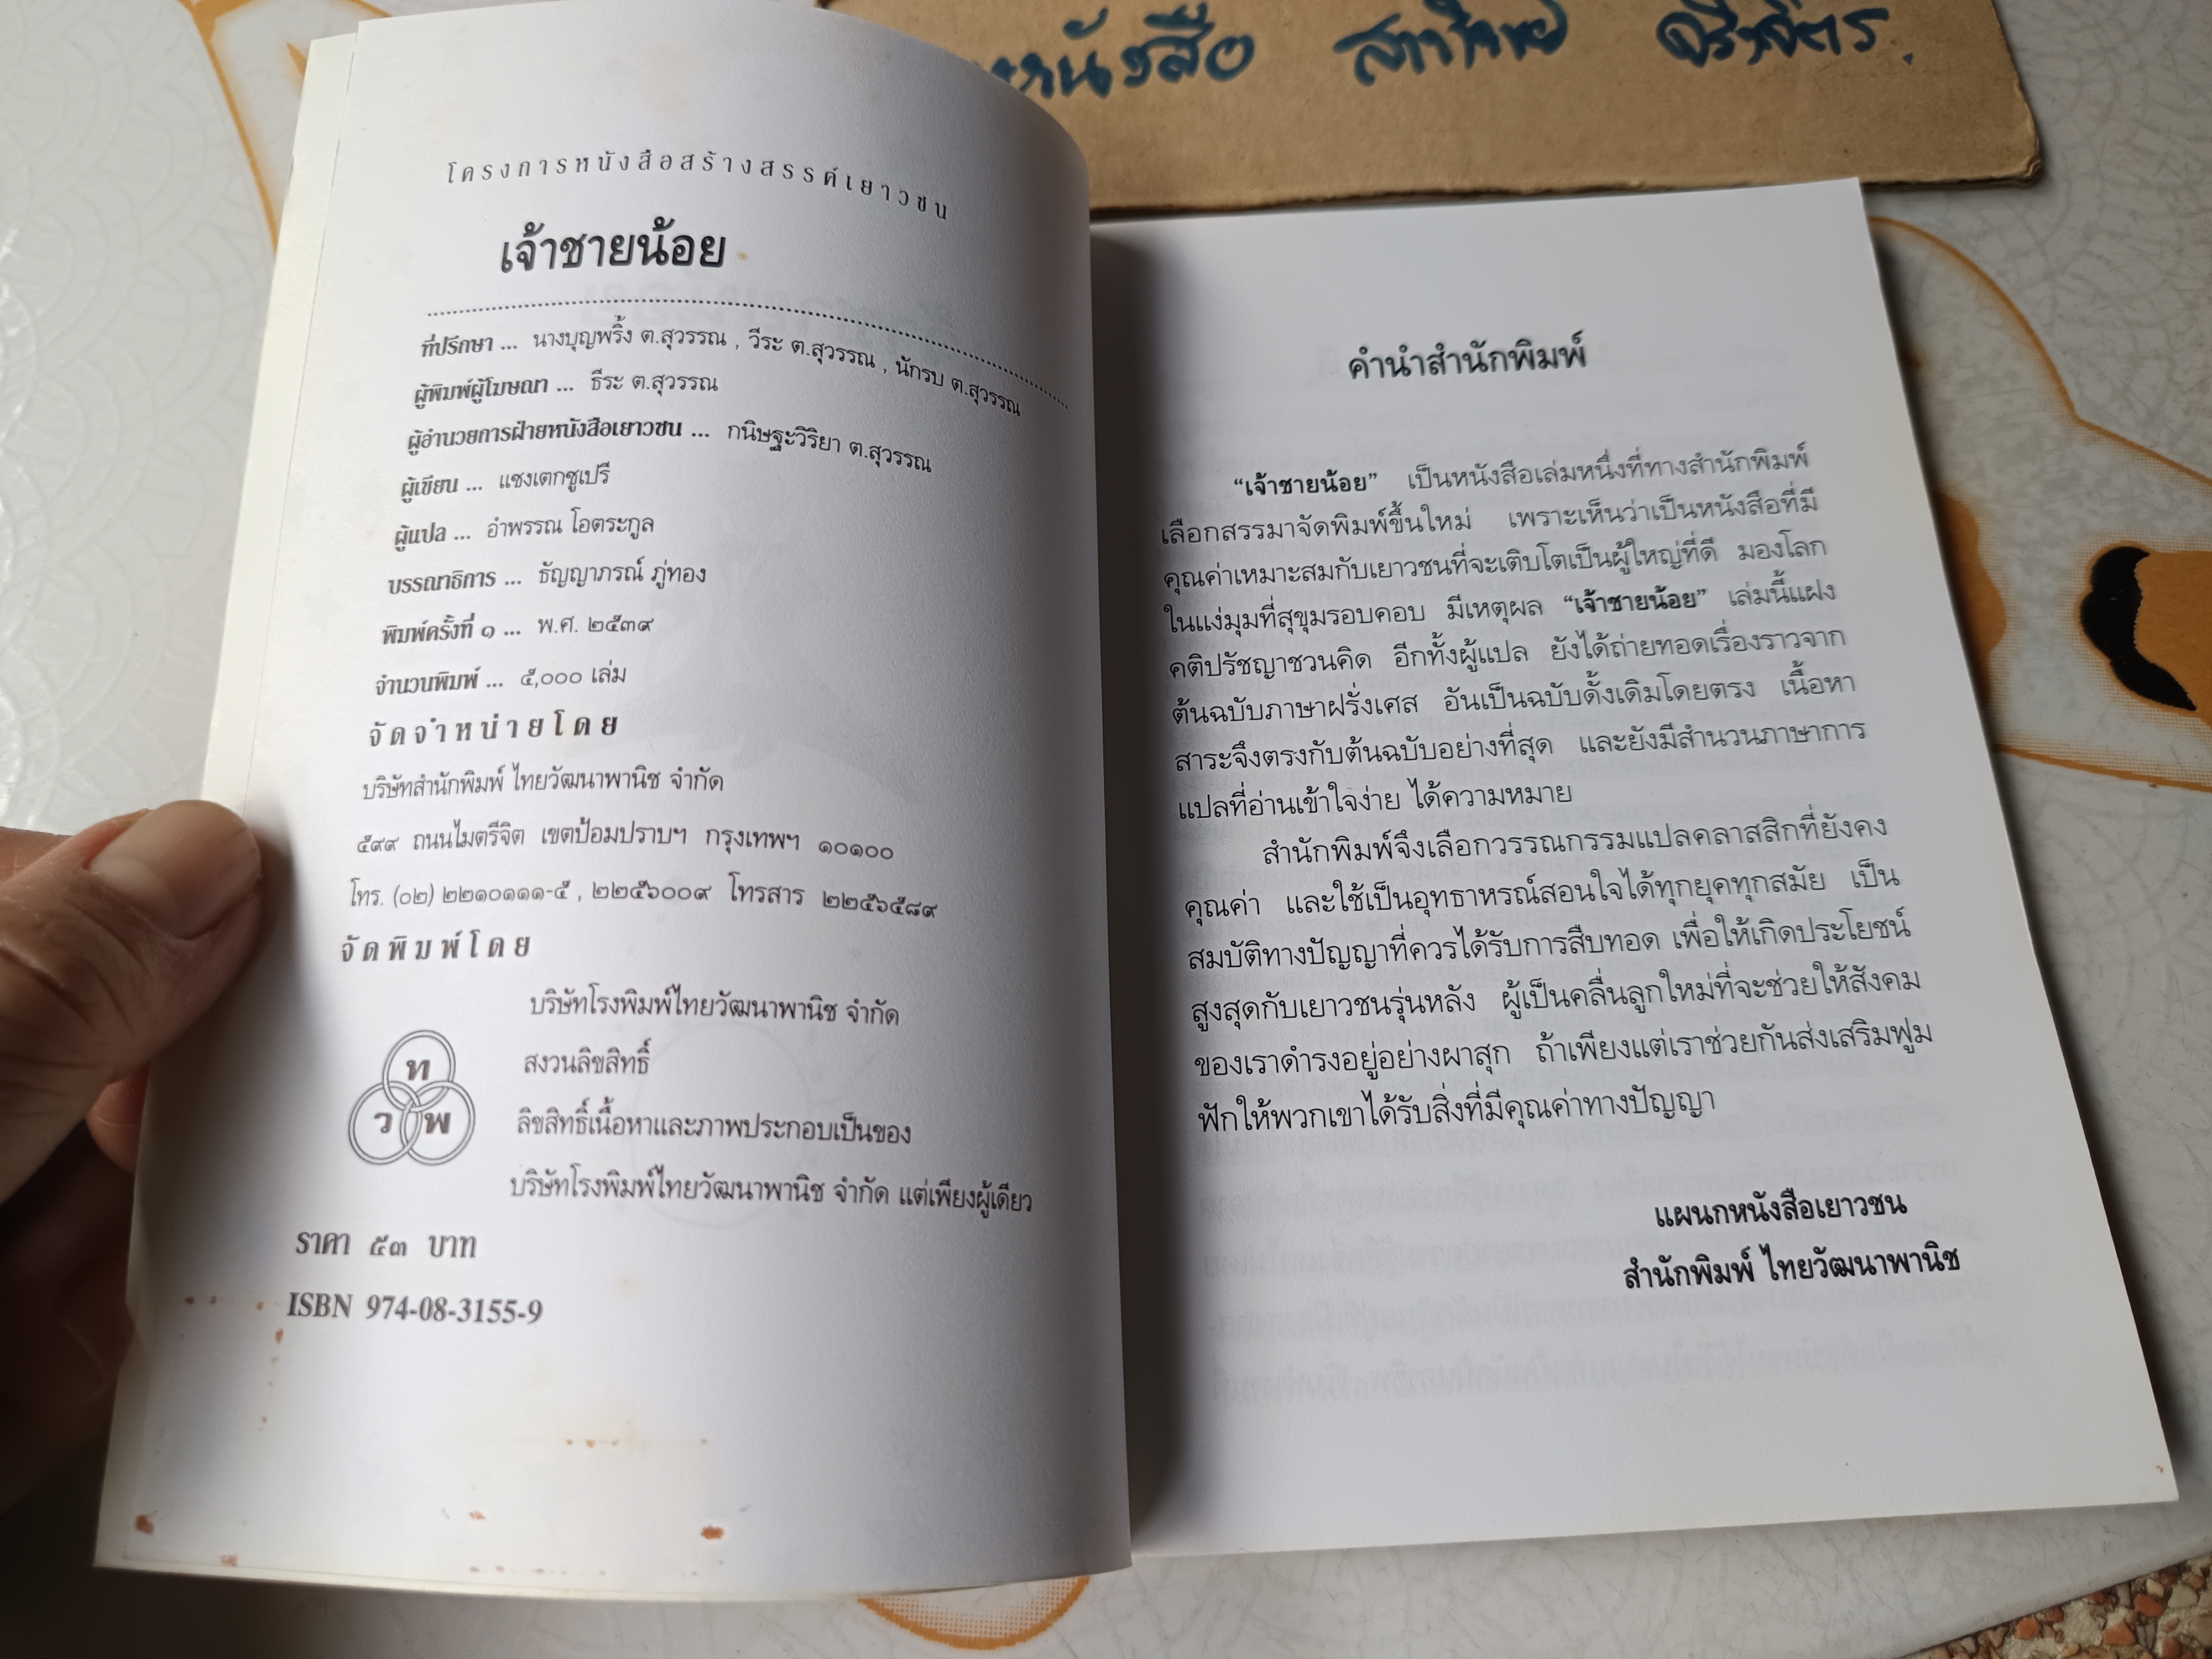 หนังสือ
โครงการหนังสือสร้างสรรค์เยาวชน
เจ้าชายน้อย
ที่ปรึกษา ... นางบุญพริ้ง ต.สุวรรณ , วีระ ต.สุวรรณ , นักรบ ต.สุวรรณ
ผู้พิมพ์ผู้โฆษณา ... ธีระ ต.สุวรรณ
ผู้อำนวยการฝ่ายหนังสือเยาวชน ... กนิษฐะวิริยา ต.สุวรรณ
ผู้เขียน ... แซงเตกซูเปรี
ผู้แปล ... อำพรรณ โอตระกูล
บรรณาธิการ ... ธัญญาภรณ์ ภู่ทอง
พิมพ์ครั้งที่ ๑ ... พ.ศ. ๒๕๓๙
จำนวนพิมพ์ ... ๕,๐๐๐ เล่ม
จัดจำหน่ายโดย
บริษัทสำนักพิมพ์ ไทยวัฒนาพานิช จำกัด
๕๙๙ ถนนไมตรีจิต เขตป้อมปราบฯ กรุงเทพฯ ๑๐๑๐๐
โทร. (๐๒) ๒๒๑๐๑๑๑-๕ , ๒๒๕๖๐๐๙ โทรสาร ๒๒๕๖๕๘๙
จัดพิมพ์โดย
บริษัทโรงพิมพ์ไทยวัฒนาพานิช จำกัด
สงวนลิขสิทธิ์
ท
ว พ
ลิขสิทธิ์เนื้อหาและภาพประกอบเป็นของ
บริษัทโรงพิมพ์ไทยวัฒนาพานิช จำกัด แต่เพียงผู้เดียว
ราคา ๕๓ บาท
ISBN 974-08-3155-9
คำนำสำนักพิมพ์
“เจ้าชายน้อย” เป็นหนังสือเล่มหนึ่งที่ทางสำนักพิมพ์
เลือกสรรมาจัดพิมพ์ขึ้นใหม่ เพราะเห็นว่าเป็นหนังสือที่มี
คุณค่าเหมาะสมกับเยาวชนที่จะเติบโตเป็นผู้ใหญ่ที่ดี มองโลก
ในแง่มุมที่สุขุมรอบคอบ มีเหตุผล “เจ้าชายน้อย” เล่มนี้แฝง
คติปรัชญาชวนคิด อีกทั้งผู้แปล ยังได้ถ่ายทอดเรื่องราวจาก
ต้นฉบับภาษาฝรั่งเศส อันเป็นฉบับดั้งเดิมโดยตรง เนื้อหา
สาระจึงตรงกับต้นฉบับอย่างที่สุด และยังมีสำนวนภาษาการ
แปลที่อ่านเข้าใจง่าย ได้ความหมาย
สำนักพิมพ์จึงเลือกวรรณกรรมแปลคลาสสิกที่ยังคง
คุณค่า และใช้เป็นอุทธาหรณ์สอนใจได้ทุกยุคทุกสมัย เป็น
สมบัติทางปัญญาที่ควรได้รับการสืบทอด เพื่อให้เกิดประโยชน์
สูงสุดกับเยาวชนรุ่นหลัง ผู้เป็นคลื่นลูกใหม่ที่จะช่วยให้สังคม
ของเราดำรงอยู่อย่างผาสุก ถ้าเพียงแต่เราช่วยกันส่งเสริมฟูม
ฟักให้พวกเขาได้รับสิ่งที่มีคุณค่าทางปัญญา
แผนกหนังสือเยาวชน
สำนักพิมพ์ ไทยวัฒนาพานิช